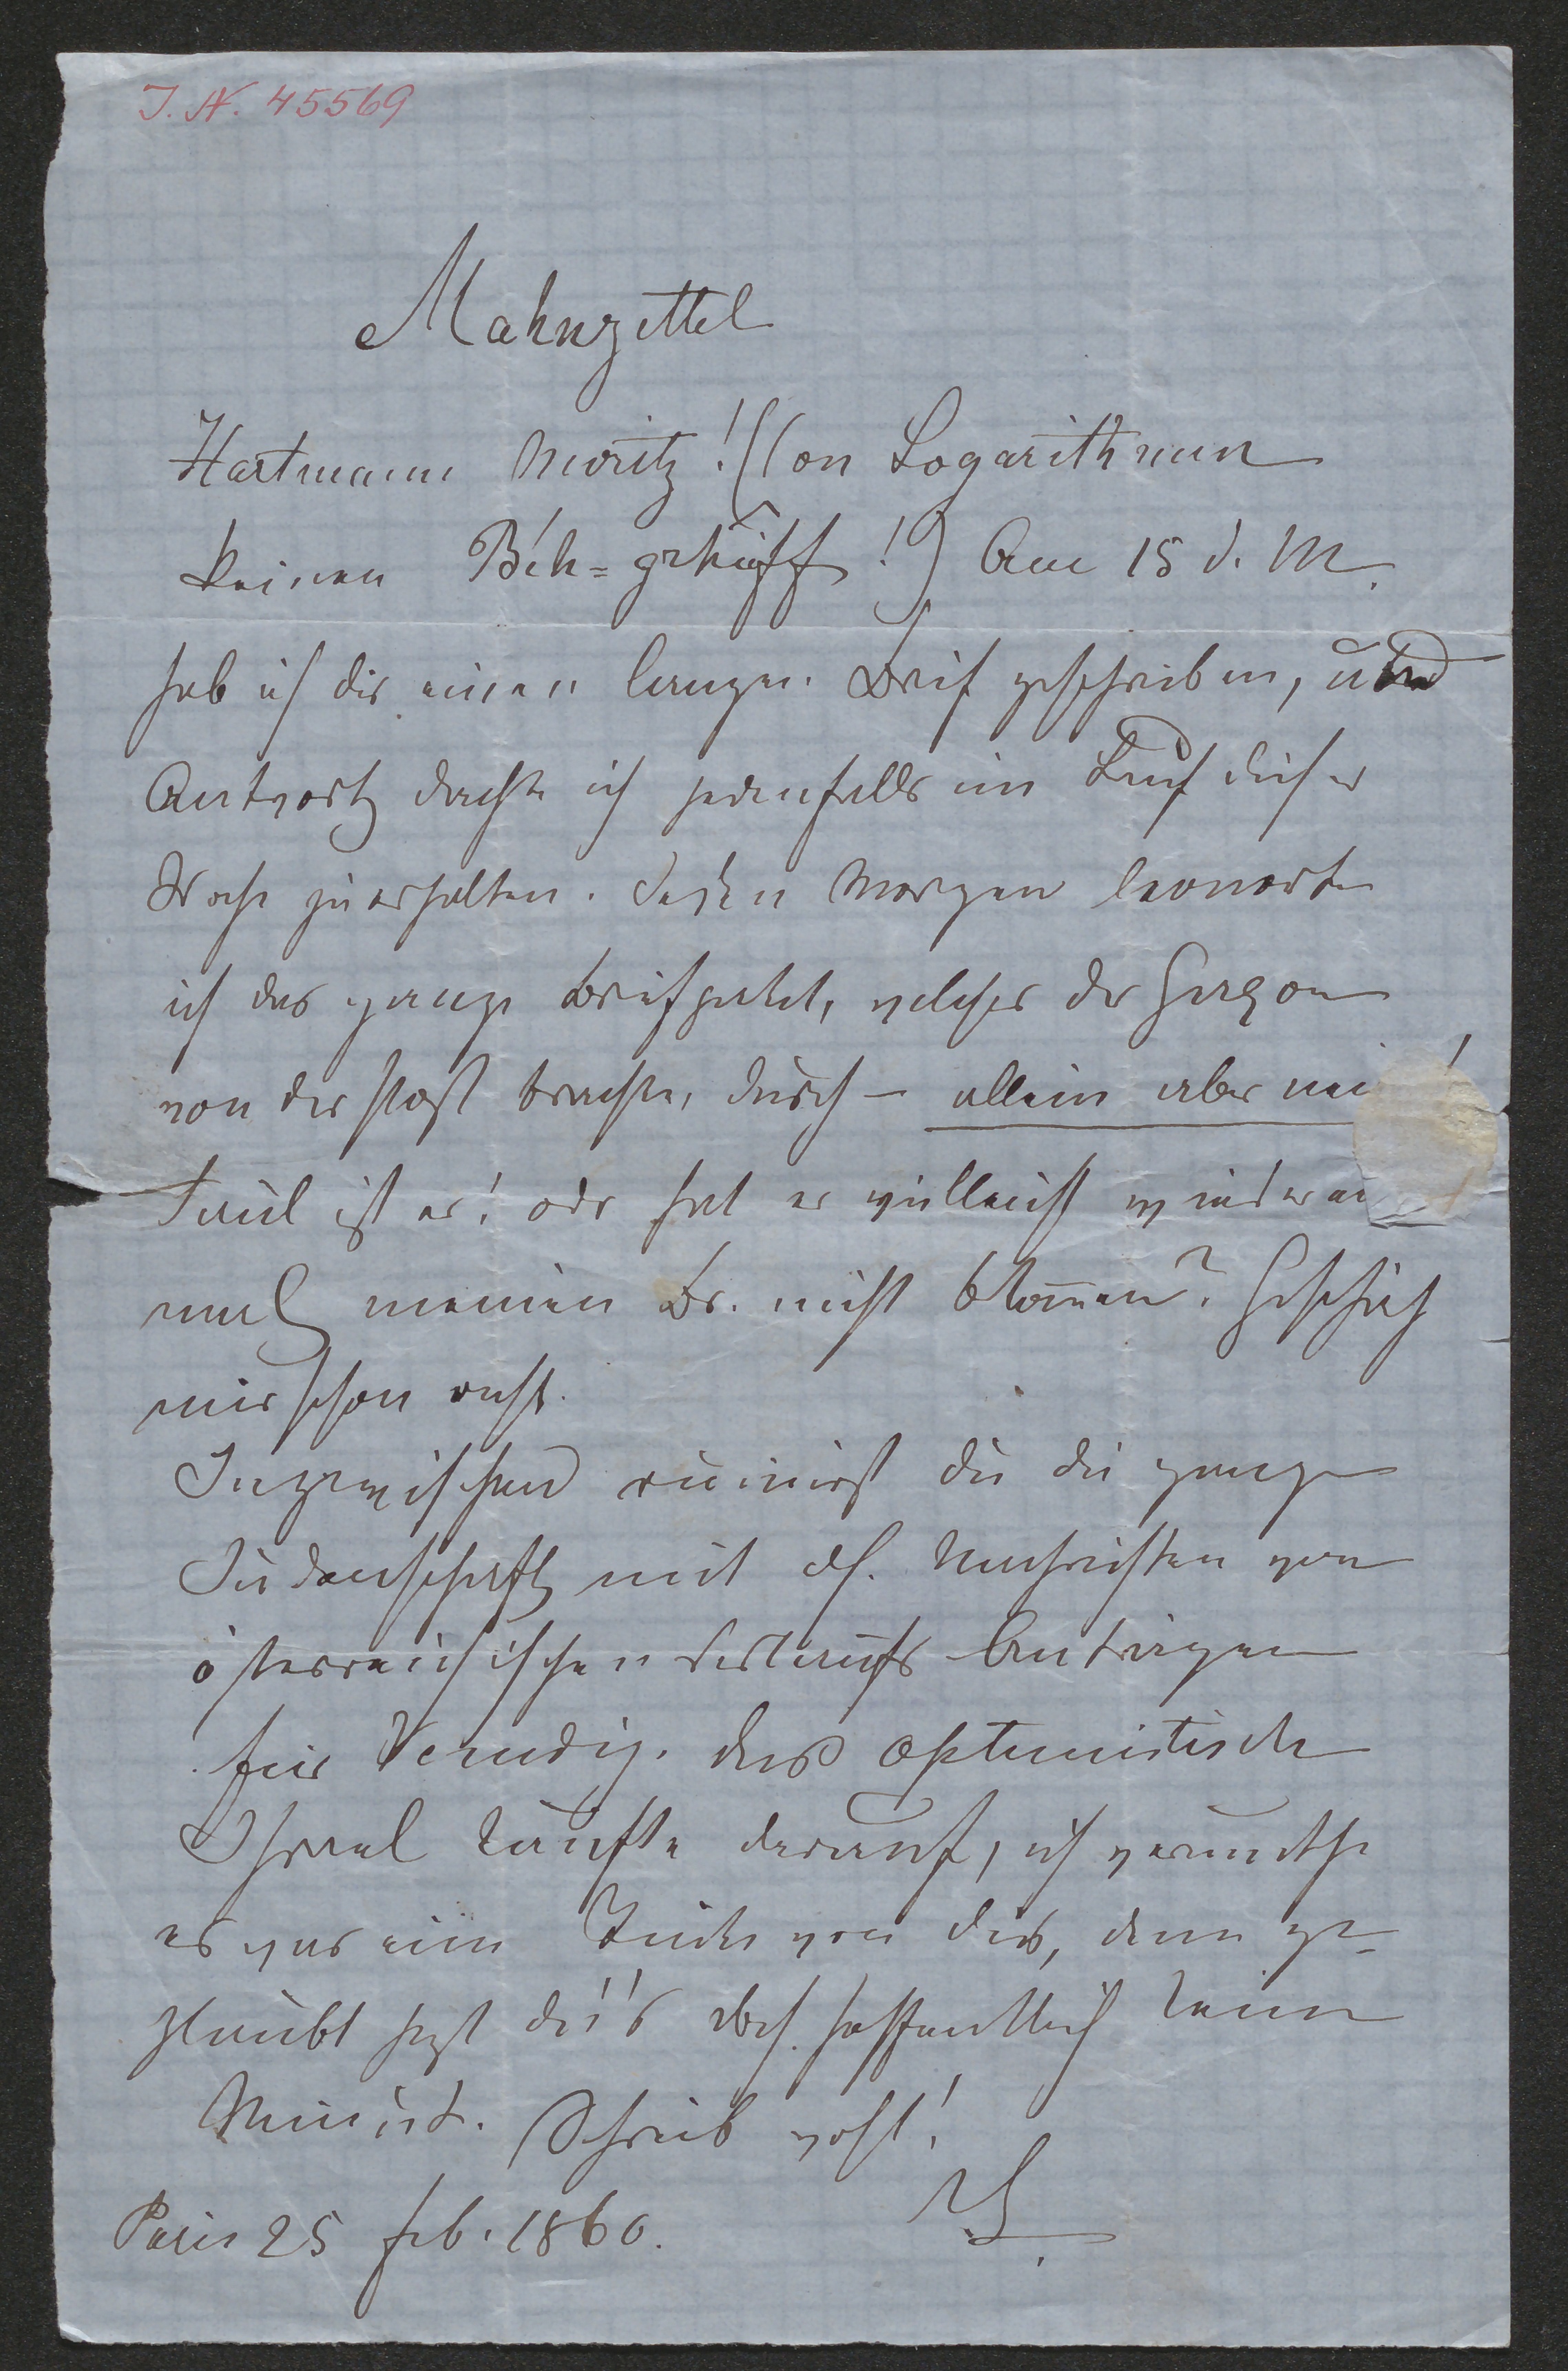 I. N. 45569
Mahnzettel
Hartmann Moritz! (von Logarithmen
keinen Begriff!) Am 15 d. M.
hab ich dir einen langen Brief geschrieben, und
Antwort dachte ich jedenfalls im Lauf dieser
Woche zu erhalten. Jeden Morgen
ich das ganze Briefpaket, welches der Garçon
von der Post brachte, durch — allein aber nei
Faul ist er! oder hat er vielleicht wieder
mal meinen Br. nicht bkommen? Geschäh
mir schon recht.
Inzwischen ruinirst du die ganze
Judenschaft mit df. Nachrichten von
österreichischen Verkaufs Anträgen
für Venedig. Das optimistische
Israel kaufte darauf, ich vermuthe
es war eine Tücke von dir, denn ge-
glaubt hast du's doch hoffentlich keine
Minut. Schreib wohl!
Paris 25 Feb. 1860.